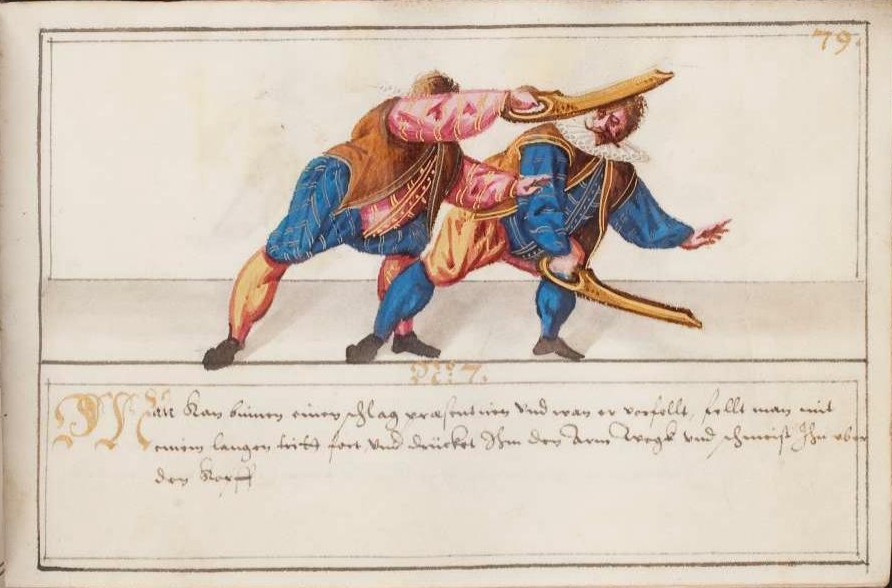 79.
No: 7.
Man kan binnen einen schlag præsentiren vnd wan er verfellt, fellt man mit
einem langen tritt fort vnd drücket Ihm den Arm wegk vnd schmeist Ihn vber
den Kopff